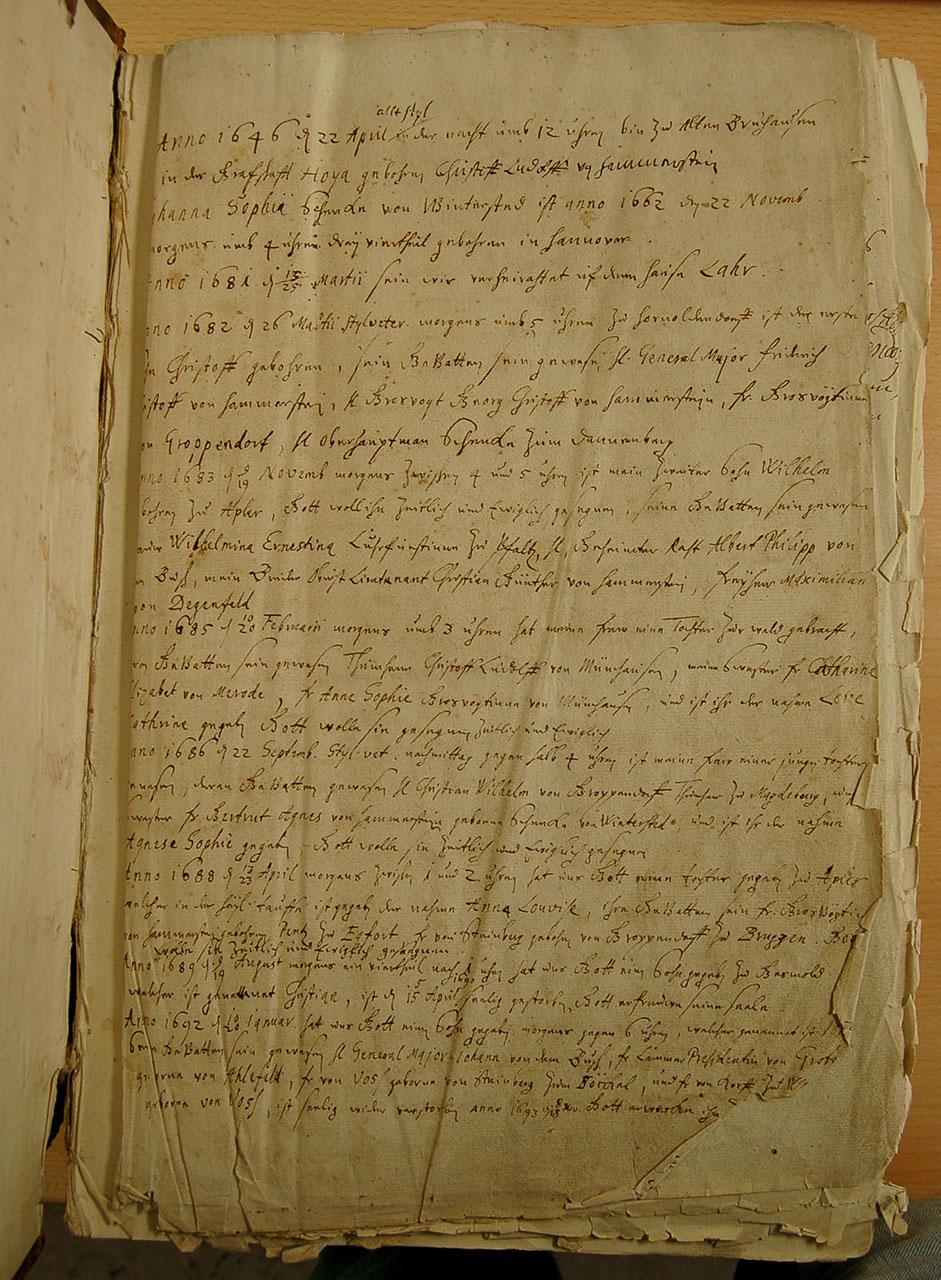 alt Styl
Anno 1646 d 22 April in der nacht umb 12 uhren bin zu Alten Bruhausen
in der Grafschafft Hoya gebohren Christoff Ludolff von Hammerstein
hanna Sophia Schencke von Wintersted ist anno 1662 den 22 Novemb
morgens umb 4 uhren drey viertheil gebohren in Hannover.
nno 1681 d 15/25 Martii sein wir verheirahtet uf dem Hause Lahr.
no 1682 d 26 Martii styl veter. morgens umb 5 uhren zu Hornoldendorff ist der erste
Christoff gebohren, sein Gevattern sein gewesen H General Major Friderich
istoff von Hammerstein, H Grosvogt Georg Christoff von Hammerstein, fr. Grosvögtinne
on Groppendorf, H Oberhauptman Schencke zum Dannenberg
nno 1683 d 9/19 Novemb morgens zwischen 4 und 5 uhren ist mein zweiter Sohn Wilhelm
bohren zu Apler, Gott woll ihn zeitlich und Ewiglich gesegnen, seine Gevattern sein gewesen
Wilhelmina Ernestina Churfürstinne zu Pfaltz, H. Geheimter Raht Albert Philipp von
Bush, mein Bruder Obrist Lieutenant Christian Günther von Hammerstein, Freyherr Maximilian
von Degenfeld
nno 1685 d 10/20 Februarii morgens umb 3 uhren hat meine fraw eine Tochter zur weld gebracht,
Gevattern sein gewesen Thumherr Christoff Ludolff von Münchausen, meine Swester fr. Catharina
lizabet von Merode, fr Anne Sophie Grosvogtinne von Münchausen, und ist ihr der nahme
athrine gegeben Gott wolle sie gesegnen zeitlich und Ewiglich
nno 1686 d 22 Septemb. Styl. vet. nachmittag gegen halb 4 uhren ist meine fraw einer jungen tochter
genesen, deren Gevattern gewesen H Christian Wilhelm von Groppendorff Thumherr zu Magdeburg,
swester fr. Gertrut Agnes von Hammerstein geborne Schencke von Winterstede, und ist ihr der nahme
Agnese Sophie gegeben Gott wolle sie zeitlich und Ewiglich gesegnen
Anno 1688 d 13/23 April morgens zwischen 1 und 2 uhren hat uns Gott eine tochter gegeben zu Apler
welcher in der heil. tauffe ist gegeben der nahme Anna Louvise, ihre Gevattern sein fr. Grosvögtin
von Hammerstein gebohrne Pentz zu Egfort, fr von Steinberg gebohrn von Groppendorff zu Bruggen. Gott
wolle sie zeitlich und Ewiglich gesegnen
Anno 1689 d 9/19 August morgens ein viertheil nach 1 uhren hat uns Gott einen Sohn gegeben zu Gesmold
welcher ist genennet Christian, ist d 15 April 1690 seelig gestorben, Gott erfreue seine seele
Anno 1692 d 10/20 Januar. hat uns Gott einen Sohn gegeben morgens gegen 6 uhren, welcher genennet ist
Seine Gevattern sein gewesen H General Major Johann von dem Bush, fr. Cammer Presidentin von Grote
geborne von Ahlefeld, fr. von Voss geborne von Steinberg zum Böckel, und fr von Korff zu
geborne von Voss, ist seelig wider verstorben anno 1693 Gott erwecke ihn